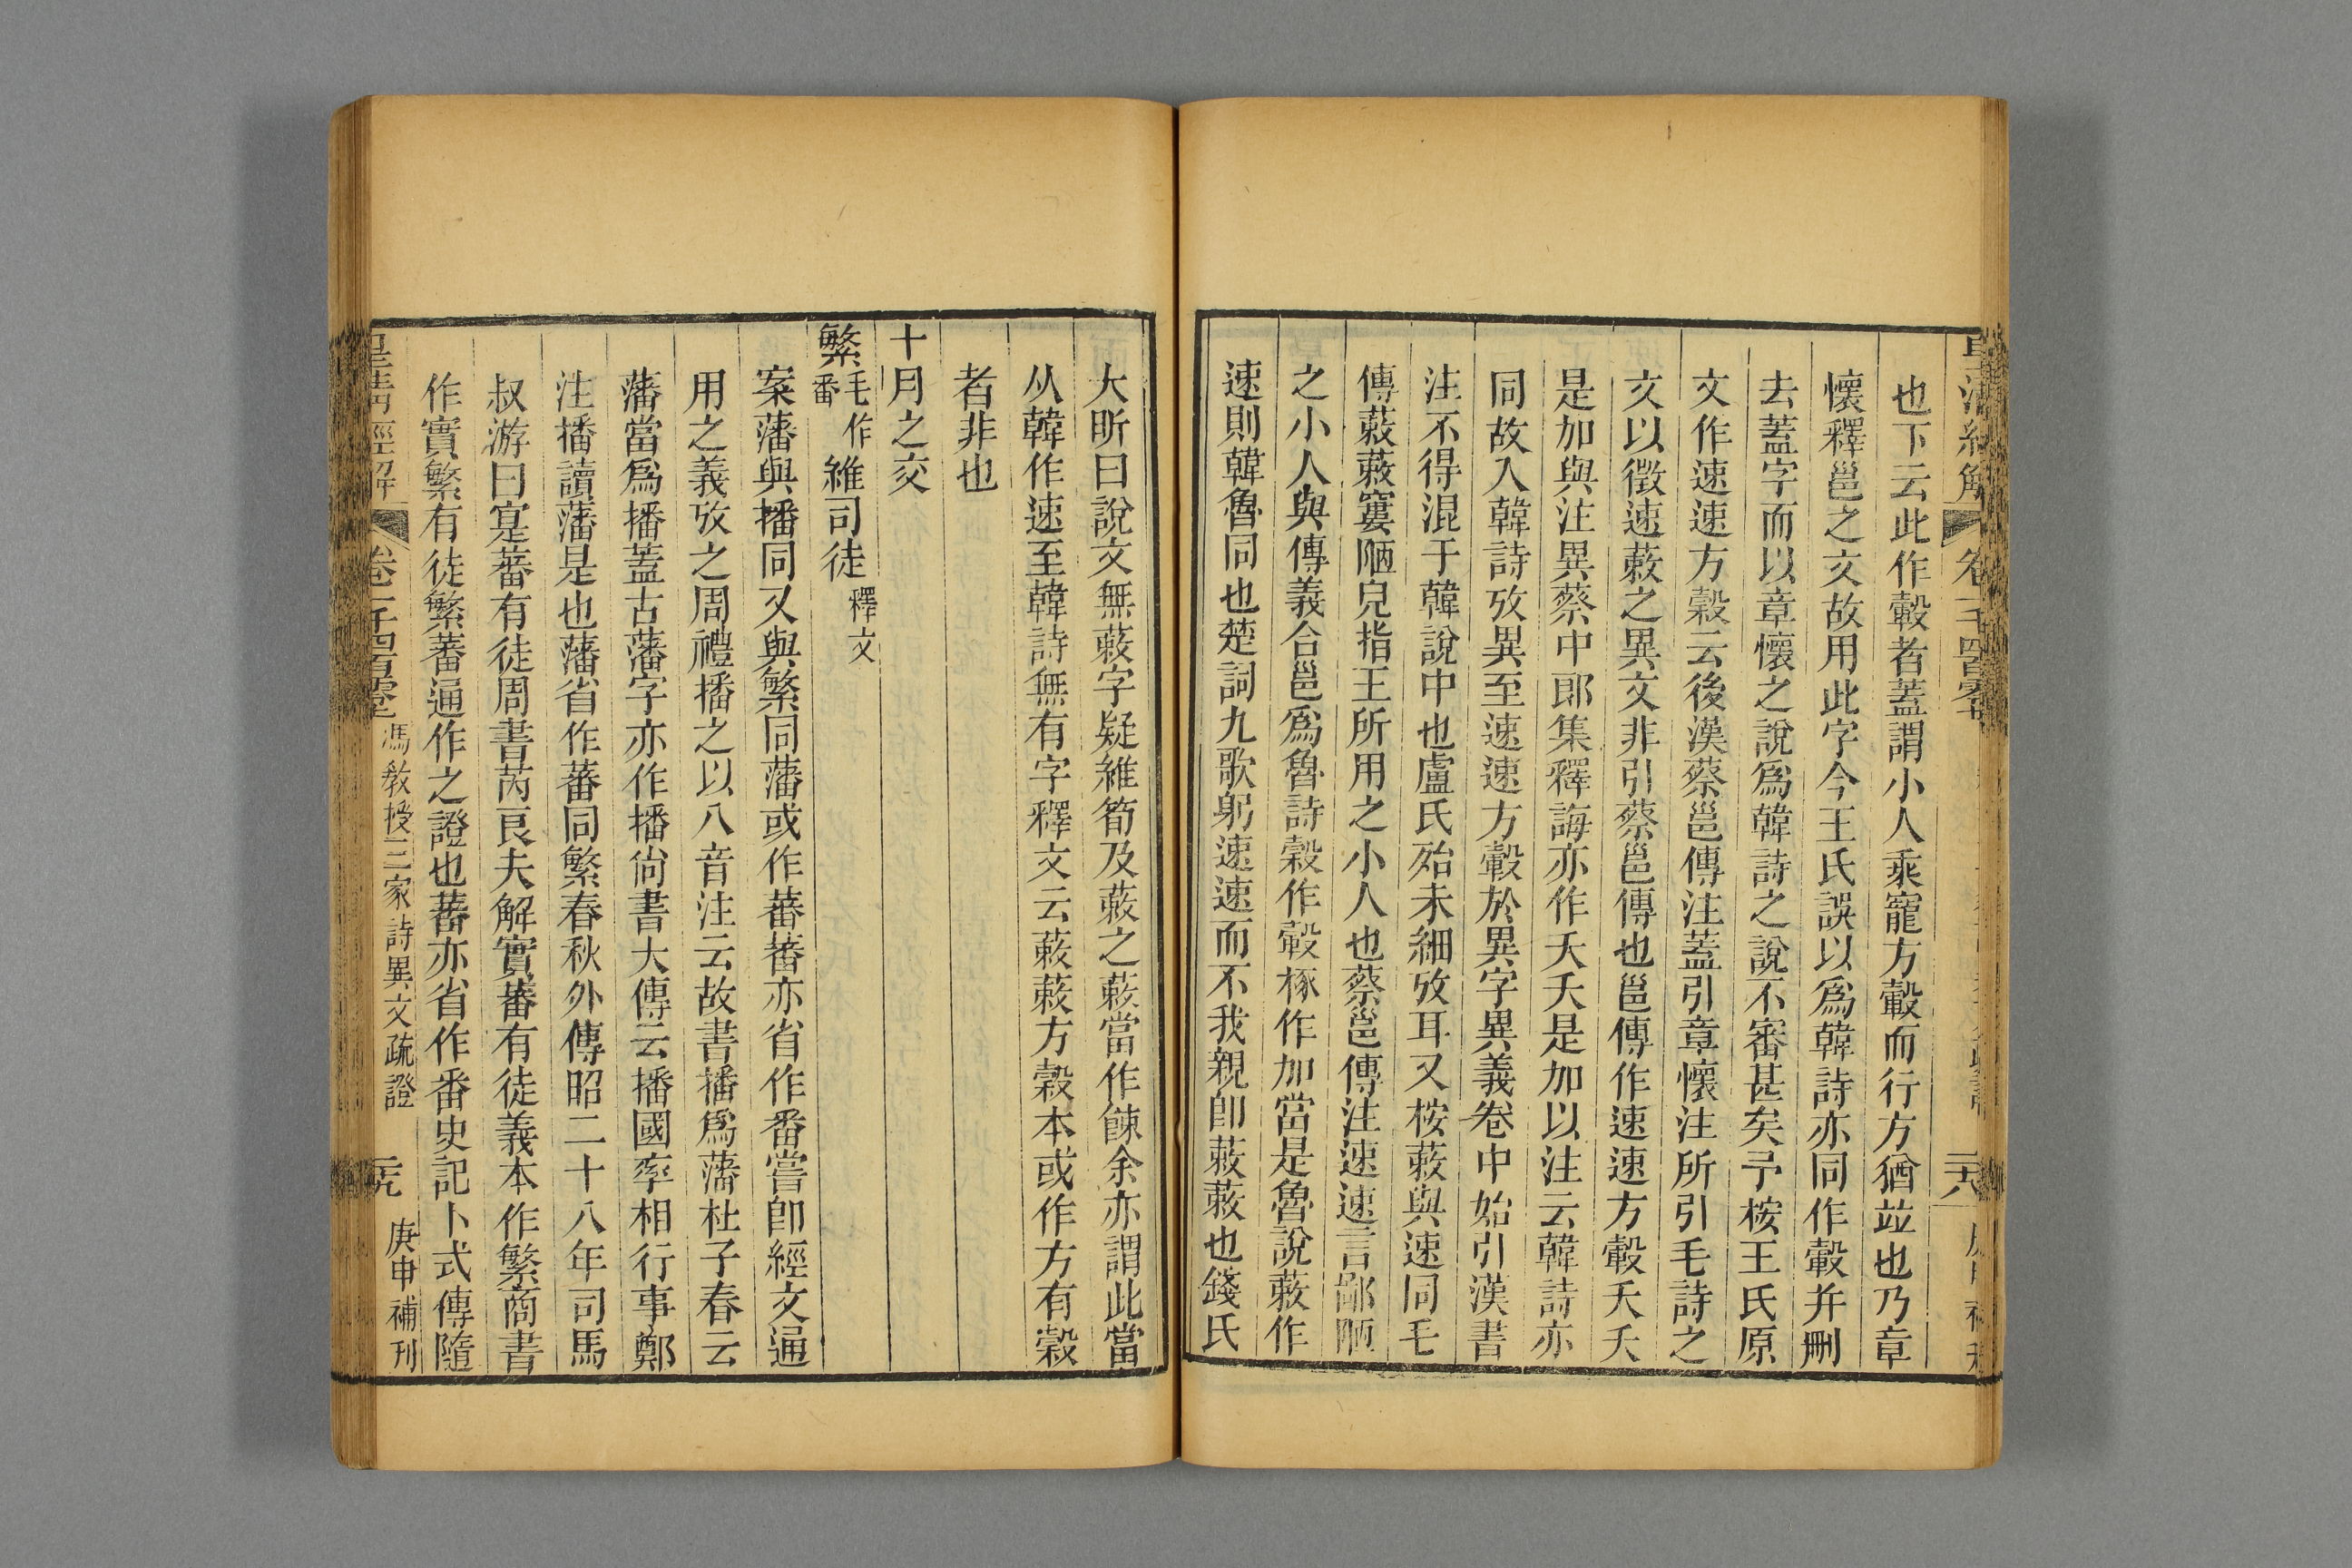 也下云此作轂者蓋謂小人乘寵方轂而行方猶竝也乃章
懷釋邕之文故用此字今王氏誤以爲韓詩亦同作轂并刪
去蓋字而以章懷之說爲韓詩之說不審甚矣予桉王氏原
文作速速方穀云後漢蔡邕傳注蓋引章懷注所引毛詩之
文以徵速蔌之異文非引蔡邕傳也邕傳作速速方轂夭夭
是加與注異蔡中郎集釋誨亦作夭夭是加以注云韓詩亦
同故入韓詩攷異至速速方轂於異字異義卷中始引漢書
注不得混于韓說中也盧氏殆未細攷耳又桉蔌與速同毛
傳蔌蔌窶陋皃指王所用之小人也蔡邕傳注速速言鄙陋
之小人與傳義合邕爲魯詩穀作轂椓作加當是魯說蔌作
速則韓魯同也楚詞九歌躬速速而不我親卽蔌蔌也錢氏
大昕曰說文無蔌字疑維筍及蔌之蔌當作餗余亦謂此當
从韓作速至韓詩無有字釋文云蔌蔌方穀本或作方有穀
者非也
十月之交
繁毛作番維司徒釋文
案藩與播同又與繁同藩或作蕃蕃亦省作番嘗卽經文通
用之義攷之周禮播之以八音注云故書播爲藩杜子春云
藩當爲播蓋古藩字亦作播尙書大傳云播國率相行事鄭
注播讀藩是也藩省作蕃同繁春秋外傳昭二十八年司馬
叔游曰寔蕃有徒周書芮良夫解實蕃有徒義本作繁商書
作實繁有徒繁蕃通作之證也蕃亦省作番史記卜式傳隨
皇淸經解 卷一千四百零七 馮敎授三家詩異文疏證 二十九 庚申補刊